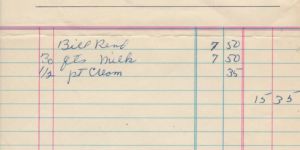 Bill Rend 7 50
30 qts Milk 7 50
1/2 pt Cream 35
15 35